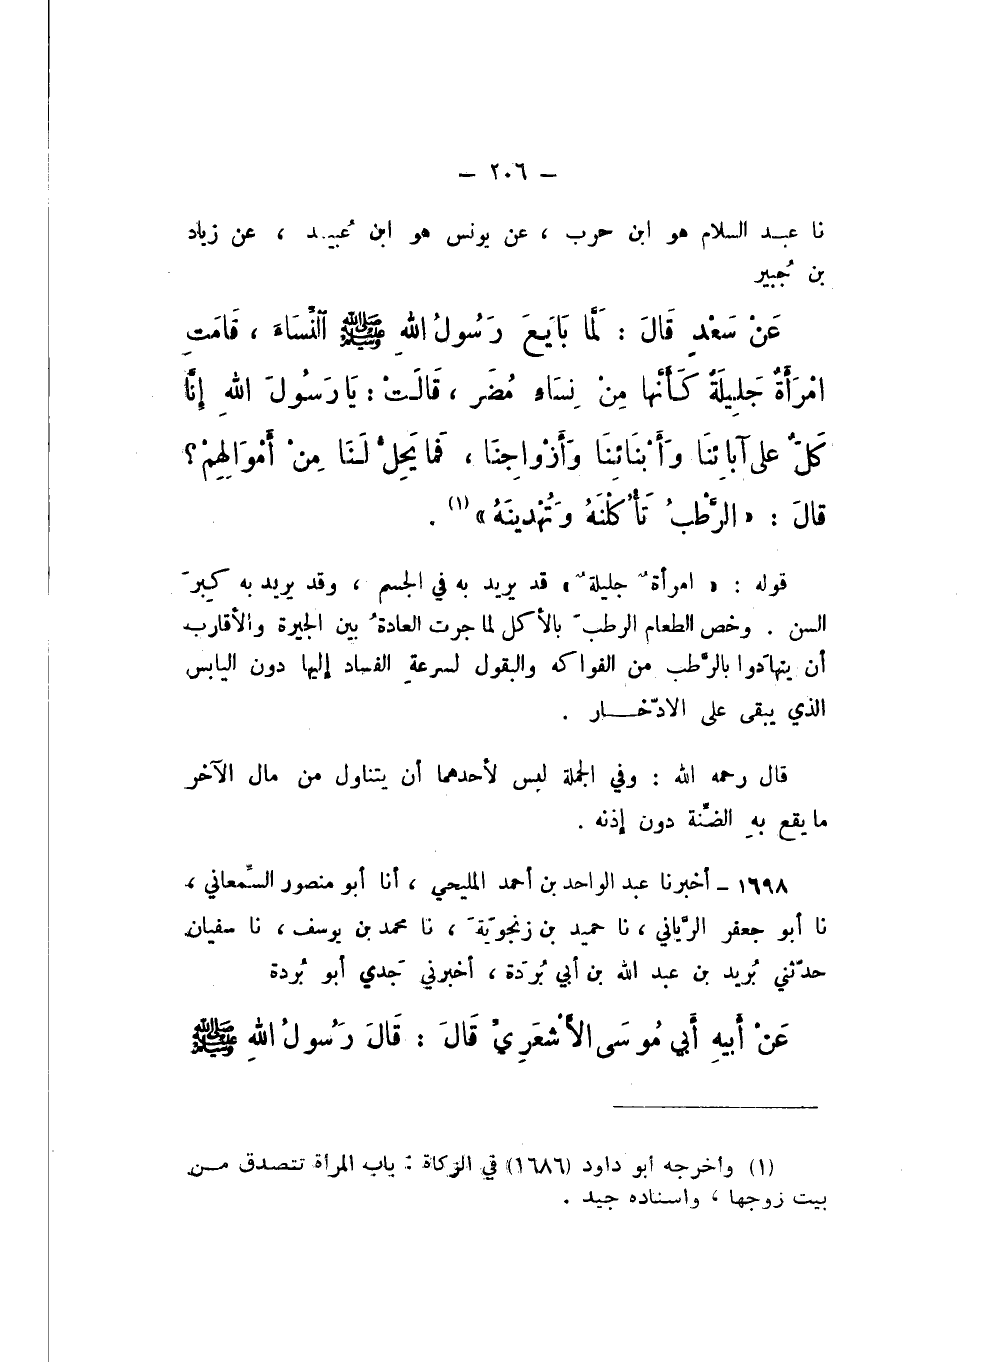 – ٢٠٦ –
نا عبـد السلام هو ابن حرب ، عن يونس هو ابن عُبيـد ، عن زياد
بن جُبير
عَنْ سَعْدٍ قَالَ : لَمَّا بَايَعَ رَسُولُ اللهِ ﷺ النِّسَاءَ ، قَامَتِ
امْرَأَةٌ جَلِيلَةٌ كَأَنَّها مِنْ نِسَاءِ مُضَر ، قَالَتْ : يَا رَسُولَ اللهِ إنَّا
كَلٌّ على آبائِنَا وَأَبْنَائِنَا وَأَزْواجِنَا ، فَمَا يَحِلُّ لَنَا مِنْ أَمْوَالِهِمْ ؟
قالَ : « الرَّطْبُ تَأْكُلْنَهُ وَتُهْدِينَهُ » (١) .
قوله : « امرأةٌ جليلةٌ » قد يريد به في الجسم ، وقد يريد به كبرَ
السن . وخص الطعام الرطبَ بالأكل لما جرت العادةُ بين الجيرة والأقارب
أن يتهادَوا بالرَّطب من الفواكه والبقول لسرعةِ الفساد إليها دون اليابس
الذي يبقى على الادّخـــار .
قال رحمه الله : وفي الجملة ليس لأحدهما أن يتناول من مال الآخر
ما يقع بهِ الضِّنة دون إذنه .
١٦٩٨ – أخبرنا عبد الواحد بن أحمد المليحي ، أنا أبو منصور السِّمعاني ،
نا أبو جعفر الرَّياني ، نا حميد بن زنجويَةَ ، نا محمد بن يوسف ، نا سفيان
حدّثني بُريد بن عبد الله بن أبي بُردَة ، أخبرني جَدي أبو بُردة
عَنْ أَبيهِ أَبي مُوسَى الأَشْعَرِيِّ قَالَ : قَالَ رَسُولُ اللهِ ﷺ
(١) وأخرجه أبو داود (١٦٨٦) في الزكاة : باب المرأة تتصدق مـن
بيت زوجها ، واسناده جيد .